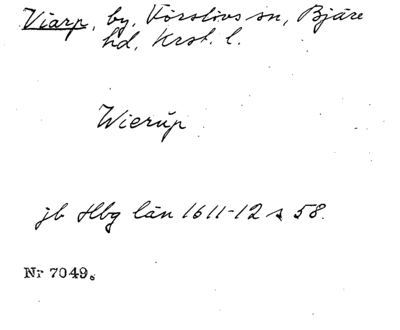 Viarp, by, Förslövs sn, Bjäre
hd, Krst. l.
Wierup
jb Hbg län 1611-12 s 58.
Nr 7049.